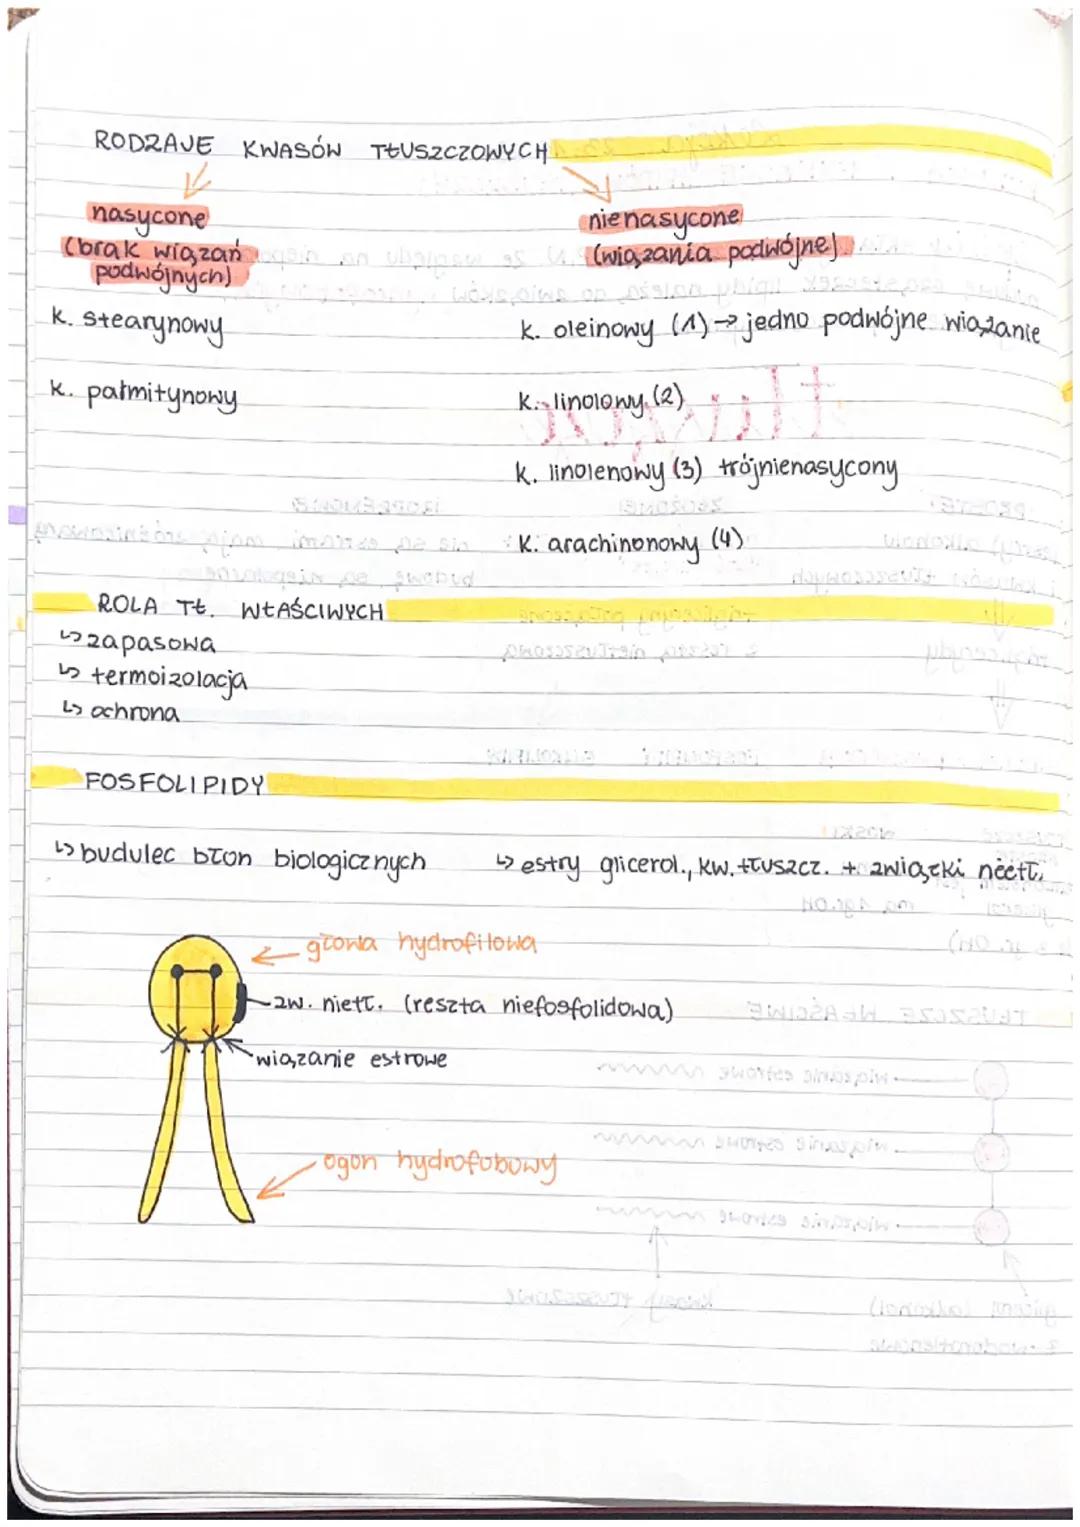 RODZAJE KWASÓW TŁUSZCZOWYCH
nasycone
(brak wiązań
podwójnych)
nienasycone
(wiązania podwójne)
k. stearynowy
k. oleinowy (1) → jedno podwójne wiązanie
k. palmitynowy
k. linolowy (2)
k. linolenowy (3) trójnienasycony
k. arachinonowy (4)
ROLA TŁ. WŁAŚCIWYCH
↳ zapasowa
↳ termoizolacja
↳ ochrona
FOSFOLIPIDY
↳ budulec błon biologicznych
↳ estry glicerol., kw. tłuszcz. + związki nietł.
głowa hydrofilowa
zw. nietł. (reszta niefosfolidowa)
wiązanie estrowe
ogon hydrofobowy